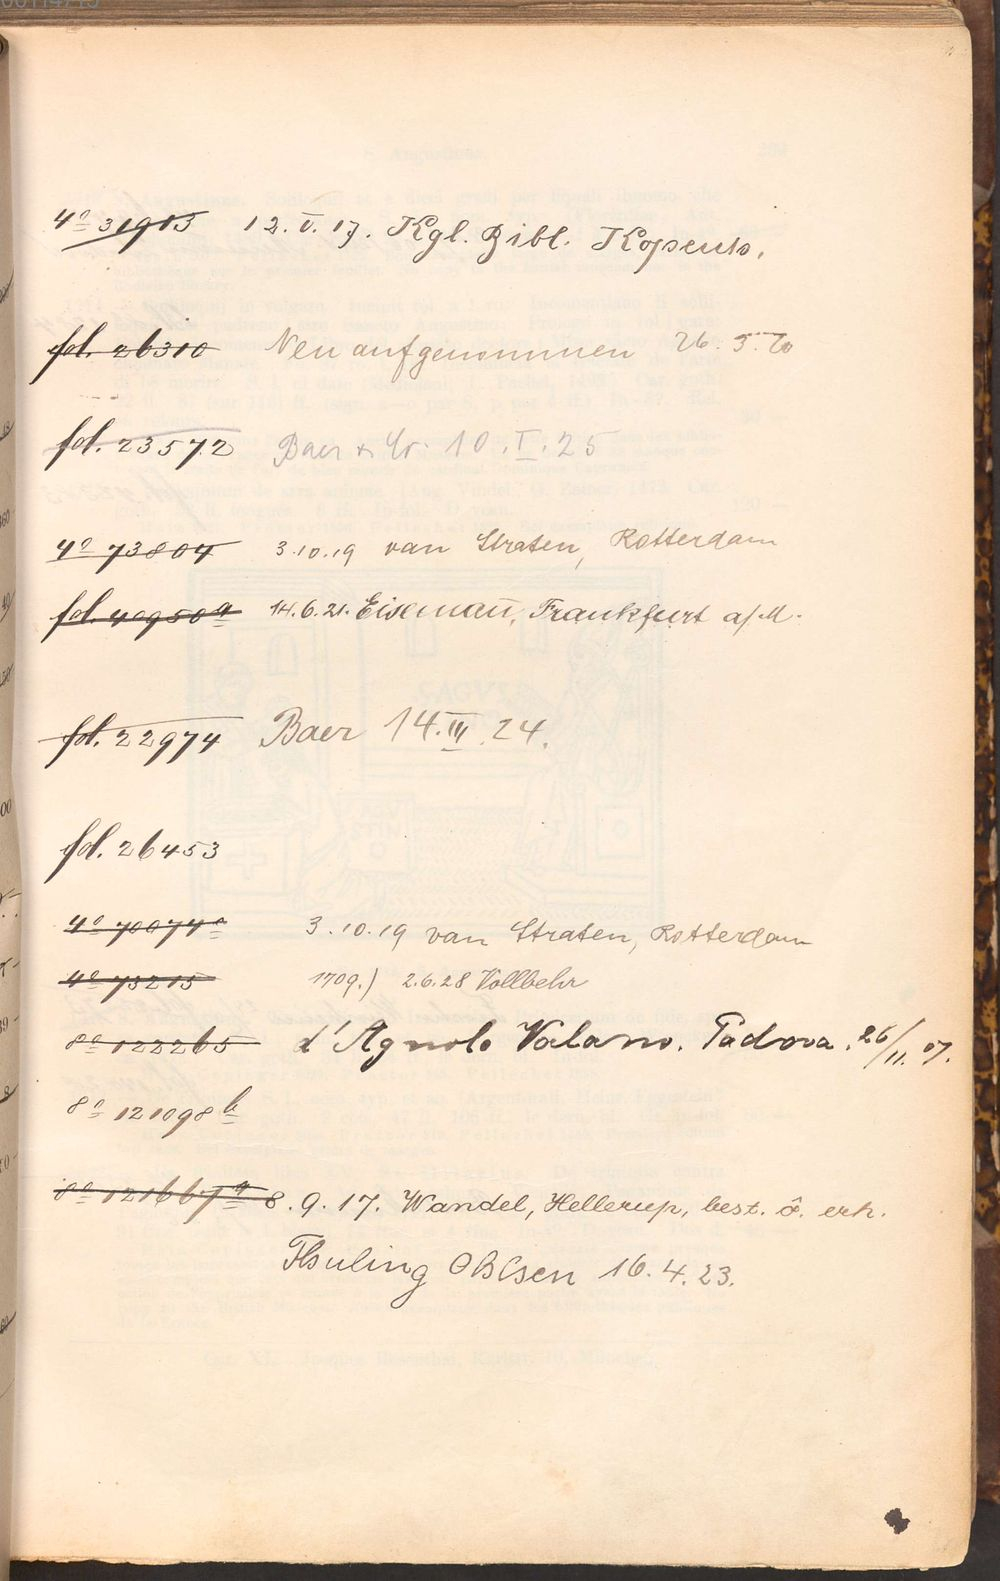 4º 31913 12.V.17. Kgl. Bibl. Kopenh.
fol. 26310 Neu aufgenommen 26.5.20
fol. 23572 Baer & Co. 10.I.25
4º 73804 3.10.19 van Straten, Rotterdam
fol. 40950a 14.6.21. Eisemañ, Frankfurt a/M.
fol. 22974 Baer 14.III.24.
fol. 26453
4º 70074a 3.10.19 van Straten, Rotterdam
4º 73215 1709.) 2.6.28 Vollbehr
8º 122265 d'Agnolo Valano. Padova. 26/11. 07.
8º 121098b
8º 121667a 8.9.17. Wandel, Hellerup, best. erh.
Ohlsen 16.4.23.